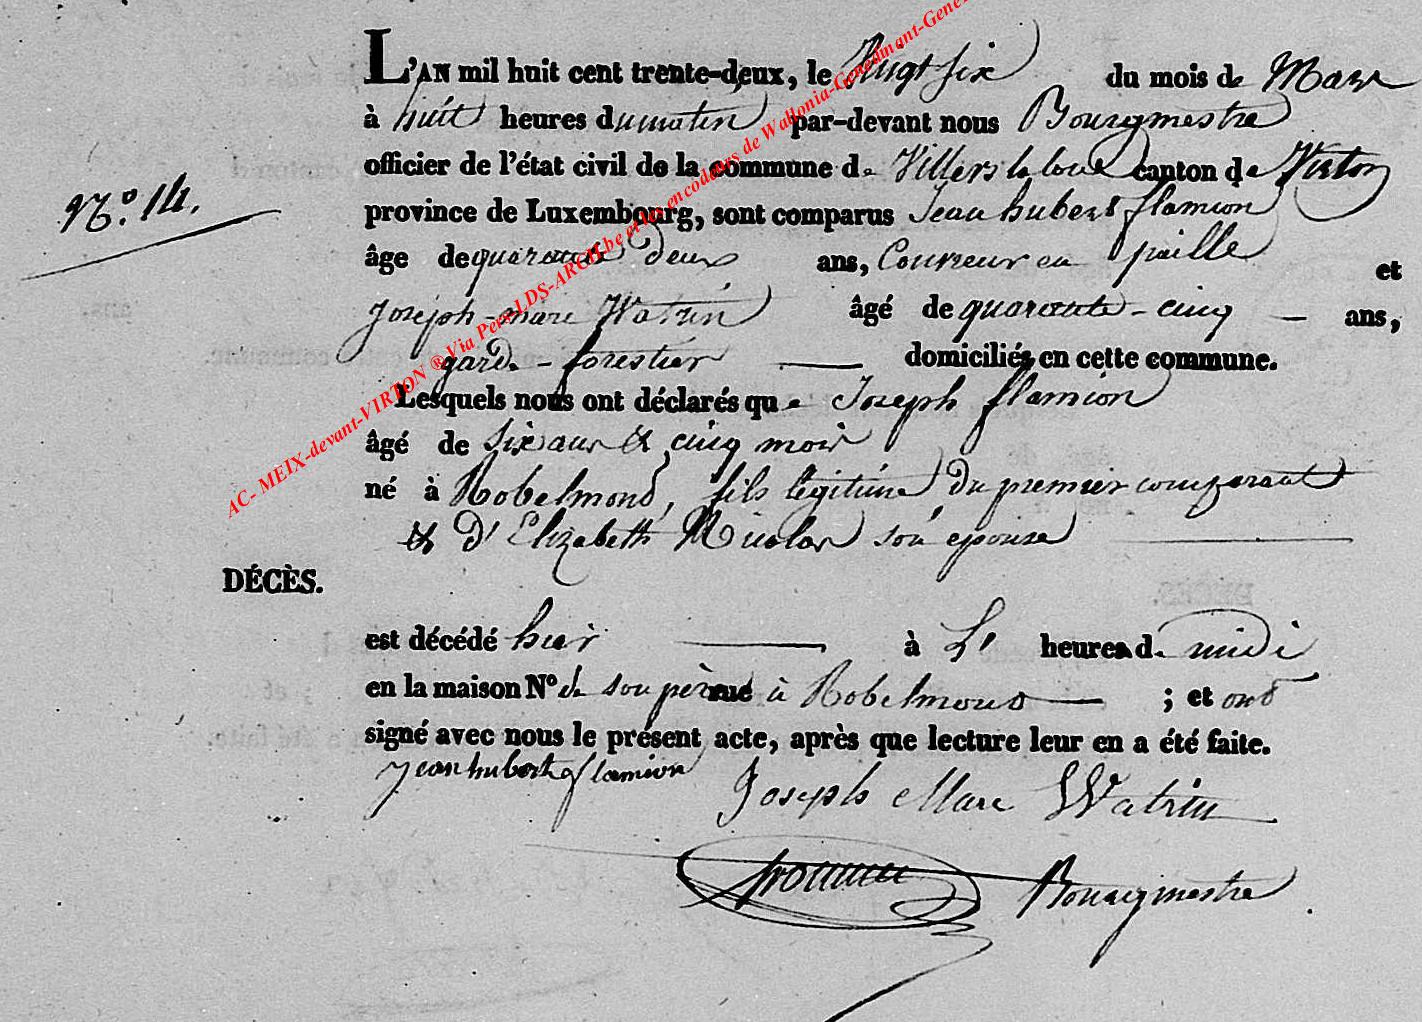 L'AN mil huit cent trente-deux, le Vingt six du mois de Mars
à huit heures du matin par-devant nous Bourgmestre
officier de l'état civil de la commune de Villers la loue canton de Virton
N.º 14.
province de Luxembourg, sont comparus Jean hubert flamion
âge de quarante deux ans, Couvreur en paille et
Joseph-marc Watrin âgé de quarante-cinq — ans,
garde-forestier — domiciliés en cette commune.
Lesquels nous ont déclarés que Joseph flamion
âgé de six ans & cinq mois
né à Robelmond, fils légitime du premier comparant
& d'Elizabeth Nicolas son épouse
DÉCÈS.
est décédé hier à L' heures de midi
en la maison Nº de son père rue à Robelmond ; et ont
signé avec nous le présent acte, après que lecture leur en a été faite.
jean hubert flamion Joseph Marc Watrin
Bourgmestre
AC- MEIX-devant-VIRTON ® Via Pers LDS-ARCH.be et les encodeurs de Wallonia-Genedinant-Gene